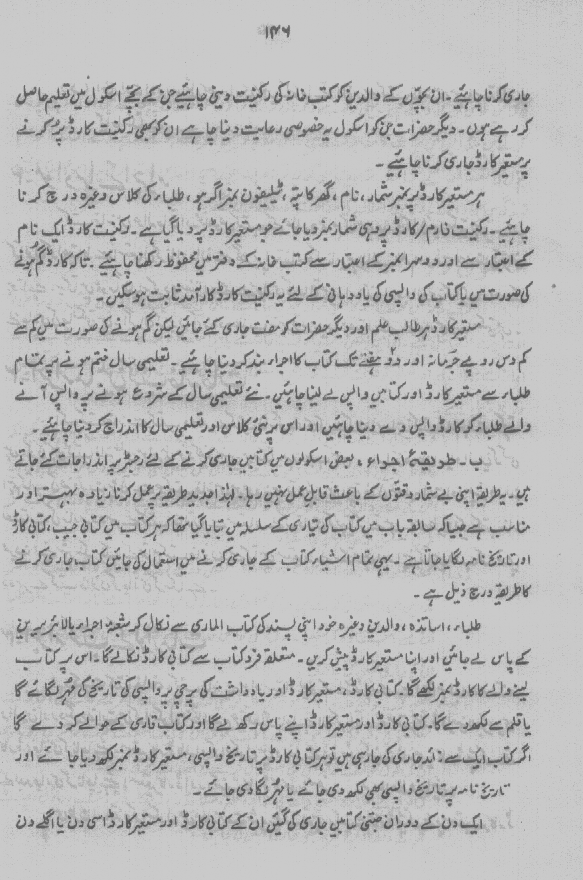 ۱۴۶
جاری کرنا چاہئیے۔ ان بچّوں کے والدین کو کتب خانہ کی رکنیت دینی چاہئیے جن کے بچّے اسکول میں تعلیم حاصل
کر رہے ہوں۔ دیگر حضرات جن کو اسکول یہ خصوصی رعایت دینا چاہے ان کو بھی رکنیت کارڈ پُر کرنے
پر مستعیر کارڈ جاری کرنا چاہئیے۔
ہر مستعیر کارڈ پر نمبر شمار، نام، گھر کا پتہ، ٹیلیفون نمبر اگر ہو، طلباء کی کلاس وغیرہ درج کرنا
چاہئیے۔ رکنیت فارم/کارڈ پر وہی شمار نمبر دیا جائے جو مستعیر کارڈ پر دیا گیا ہے۔ رکنیت کارڈ ایک نام
کے اعتبار سے اور دوسرا نمبر کے اعتبار سے کتب خانہ کے دفتر میں محفوظ رکھنا چاہئیے۔ تاکہ کارڈ گم ہونے
کی صورت میں یا کتاب کی واپسی کی یاد دہانی کے لئے یہ رکنیت کارڈ کارآمد ثابت ہو سکیں۔
مستعیر کارڈ ہر طالب علم اور دیگر حضرات کو مفت جاری کئے جائیں لیکن گم ہونے کی صورت میں کم سے
کم دس روپے جرمانہ اور دو ہفتے تک کتاب کا اجراء بند کر دینا چاہئیے۔ تعلیمی سال ختم ہونے پر تمام
طلباء سے مستعیر کارڈ اور کتابیں واپس لے لینا چاہئیں۔ نئے تعلیمی سال کے شروع ہونے پر واپس آنے
والے طلباء کو کارڈ واپس دے دینا چاہئیں اور اس پر نئی کلاس اور تعلیمی سال کا اندراج کر دینا چاہئیے۔
ب۔ طریقۂ اجراء، بعض اسکولوں میں کتابیں جاری کرنے کے لئے رجسٹر پر اندراجات کئے جاتے
ہیں۔ یہ طریقہ اپنی بے شمار دقّتوں کے باعث قابلِ عمل نہیں رہا۔ لہٰذا جدید طریقہ پر عمل کرنا زیادہ بہتر اور
مناسب ہے جیسا کہ سابقہ باب میں کتاب کی تیاری کے سلسلہ میں بتایا گیا تھا کہ ہر کتاب میں کتابی جیب، کتابی کارڈ
اور تاریخ نامہ لگایا جاتا ہے۔ یہی تمام اشیاء کتاب کے جاری کرنے میں استعمال کی جائیں کتاب جاری کرنے
کا طریقہ درج ذیل ہے۔
طلباء، اساتذہ، والدین وغیرہ خود اپنی پسند کی کتاب الماری سے نکال کر شعبۂ اجراء یا لائبریرین
کے پاس لے جائیں اور اپنا مستعیر کارڈ پیش کریں۔ متعلقہ فرد کتاب سے کتابی کارڈ نکالے گا۔ اس پر کتاب
لینے والے کا کارڈ نمبر لکھے گا۔ کتابی کارڈ، مستعیر کارڈ اور یادداشت کی پرچی پر واپسی کی تاریخ کی مُہر لگائے گا
یا قلم سے لکھ دے گا۔ کتابی کارڈ اور مستعیر کارڈ اپنے پاس رکھ لے گا اور کتاب قاری کے حوالے کر دے گا
اگر کتاب ایک سے زائد جاری کی جا رہی ہیں تو ہر کتابی کارڈ پر تاریخ واپسی، مستعیر کارڈ نمبر لکھ دیا جائے اور
تاریخ نامہ پر تاریخ واپسی بھی لکھ دی جائے یا مُہر لگا دی جائے۔
ایک دن کے دوران جتنی کتابیں جاری کی گئیں ان کے کتابی کارڈ اور مستعیر کارڈ اسی دن یا اگلے دن